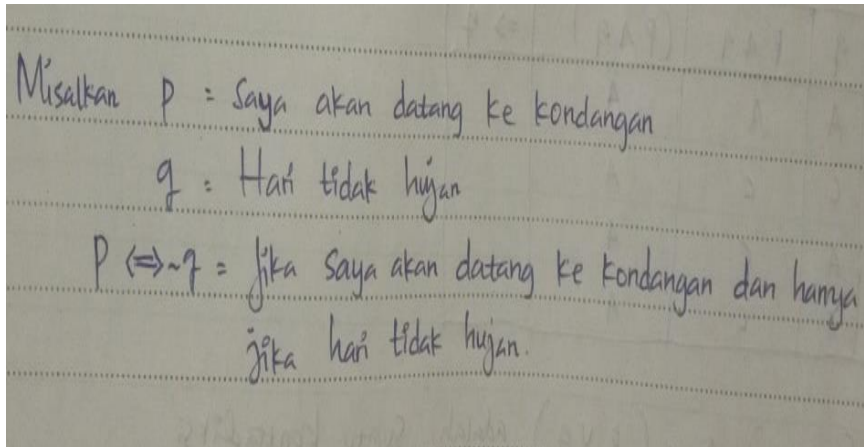 Misalkan P = Saya akan datang ke kondangan
q = Hari tidak hujan
P <=> ~q = Jika saya akan datang ke kondangan dan hanya
jika hari tidak hujan.